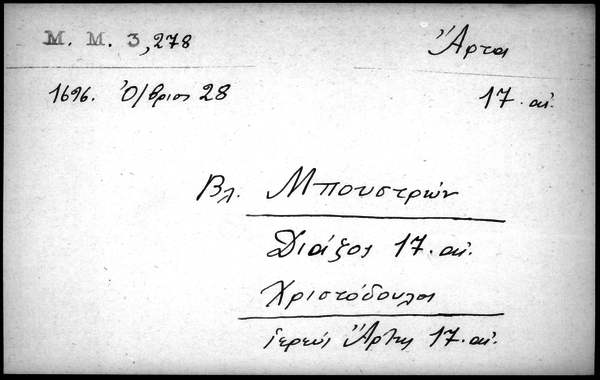 Μ. Μ. 3,278
Ἄρτα
1696. Ὀ/βριος 28
17. αἰ.
Βλ. Μπουστρών
Διάξος 17. αἰ.
Χριστόδουλος
ἱερεύς Ἄρτης 17. αἰ.